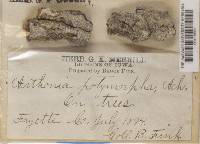 HERB. G. K. MERRILL
LICHENS OF IOWA.
Prepared by Bruce Fink.
Arthonia polymorpha, Ach.
On trees
Fayette, Co. July 1894.
Coll. B. Fink